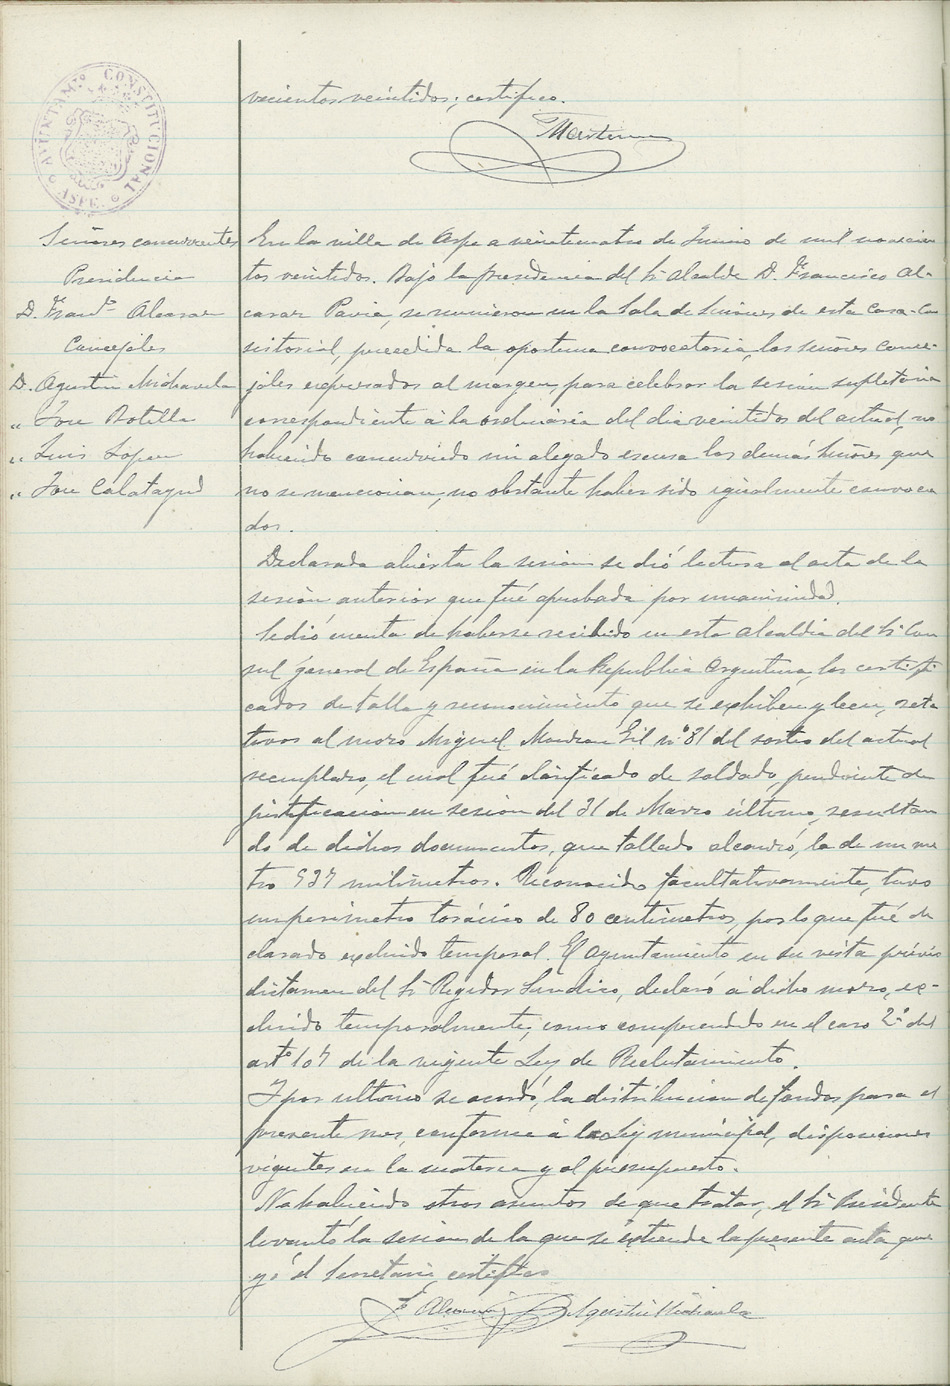 AYUNTAM.º CONSTITVCIONAL
ASPE
vecientos veintidos; certifico.
Señores concurrentes
Presidencia
D. Fran.co Alcaraz
Concejales
D. Agustin Mira
" Jose Botella
" Luis Lopez
" Jose Calatayud
En la villa de Aspe a veinticuatro de Junio de mil novecien
tos veintidos. Bajo la presidencia del Sr Alcalde D. Francisco Al-
caraz Pavia, se reunieron en la Sala de Sesiones de esta Casa-Con
sistorial, precedida la oportuna convocatoria, los señores conce-
jales expresados al margen, para celebrar la sesion supletoria
correspondiente á la ordinaria del dia veintidos del actual, no
habiendo concurrido ni alegado escusa los demás Señores que
no se mencionan, no obstante haber sido igualmente convoca
dos.
Declarada abierta la sesion se dió lectura al acta de la
sesión anterior que fué aprobada por unanimidad.
Se dió cuenta de haberse recibido en esta Alcaldia del Sr Con
sul general de España en la Republica Argentina, los certifi
cados de talla y reconocimiento, que se exhiben y leen, rela
tivos al mozo Miguel Gil nº 81 del sorteo del actual
reemplazo, el cual fué clasificado de soldado, pendiente de
justificacion en sesion del 31 de Marzo último, resultan
do de dichos documentos, que tallado alcanzó, la de un me
tro 537 milimetros. Reconocido facultativamente, tuvo
un perimetro torácico de 80 centimetros, por lo que fué de
clarado excluido temporal. El Ayuntamiento en su vista prévio
dictamen del Sr Regidor Sindico, declaró á dicho mozo, ex-
cluido temporalmente, como comprendido en el caso 2º del
artº 107 de la vigente Ley de Reclutamiento.
Y por ultimo se acordó, la distribucion de fondos para el
presente mes, conforme á la Ley municipal, disposiciones
vigentes en la materia y al presupuesto.
No habiendo otros asuntos de que tratar, el Sr Presidente
levantó la sesion de la que se estiende la presente acta que
yó el Secretario certifico
F. Alcaraz Agustin